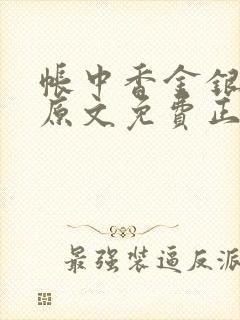 帐中香金银
原文免费正
最强装逼反派